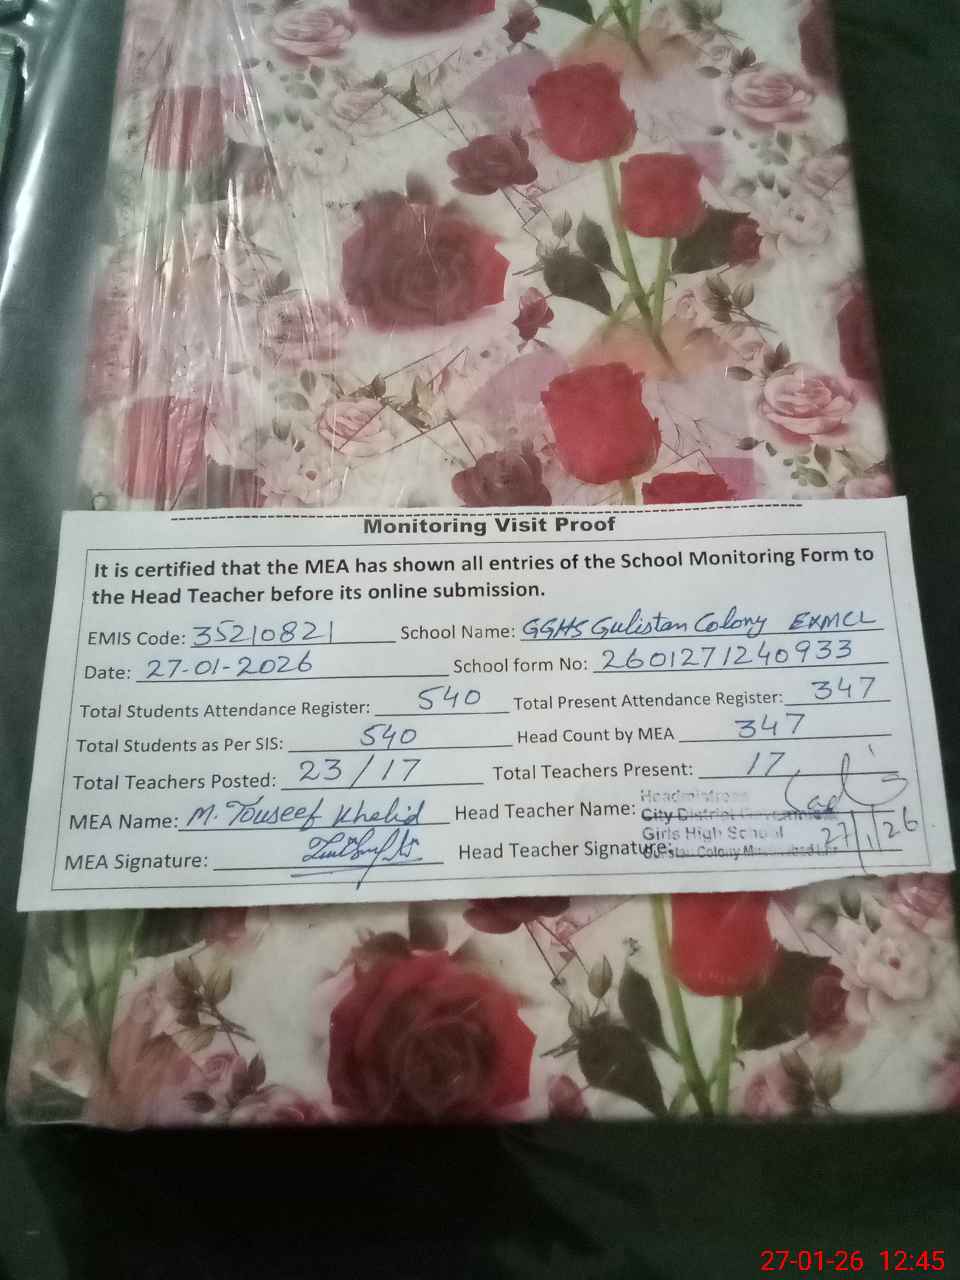 Monitoring Visit Proof
It is certified that the MEA has shown all entries of the School Monitoring Form to
the Head Teacher before its online submission.
EMIS Code: 35210821 School Name: GGHS Gulistan Colony EXMCL
Date: 27-01-2026 School form No: 2601271240933
Total Students Attendance Register: 540 Total Present Attendance Register: 347
Total Students as Per SIS: 540 Head Count by MEA 347
Total Teachers Posted: 23/17 Total Teachers Present: 17
MEA Name: M. Touseef Khalid Head Teacher Name:
Headmistress
City District Government
Girls High School
27/1/26
MEA Signature: Head Teacher Signature:
27-01-26 12:45